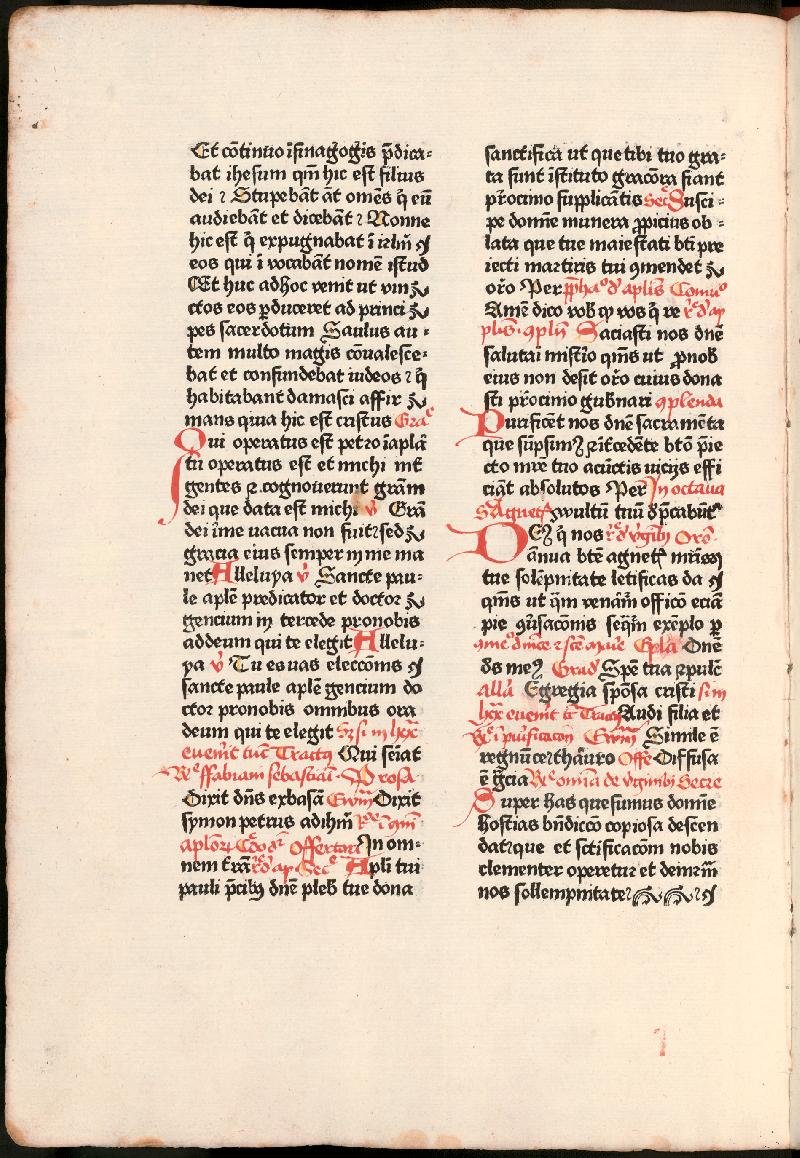 Et cōtinuo īsinagogis p̄dica⸗
bat ihesum qm̄ hic est filius
dei ⁊ Stupebāt āt omēs q̇ eū
audiebāt et dicebāt ⁊ Nonne
hic est q̇ expugnabat ī irlm̄ ꝯ
eos qui ī vocabāt nomē istud
Et huc adhoc venit ut vin
ctos eos ꝑduceret ad princi
pes sacerdotium Saulus au⸗
tem multo magis cōualesce⸗
bat et confundebat iudeos ⁊ q̇
habitabant damasci affir
mans quia hic est cristus Gra
Qui operatus est petro īaplā
tū operatus est et michi int̄
gentes ⁊ cognouerunt grām
dei que data est michi v̄ Grā
dei īme uacua non fuit ⁊ sed
gracia eius semper in me ma
net Alleluya v̄ Sancte pau⸗
le aplē predicator et doctor
gencium in tercede pronobis
addeum qui te elegit Allelu⸗
ya v̄ Tu es uas eleccōnis ꝯ
sancte paule aplē gencium do
ctor pronobis omnibus ora
deum qui te elegit Et si in lxx
euen̄it tūc Tractꝯ Qui semīat
Rᵉ ffabiani sebastiani Prosa
Dixit dn̄s exbasā Ewm̄ Dixit
symon petrus adihm̄
aplorꝝ Cdo Offertori In om⸗
nem t̄rā Secᵉ Apl̄i tui
pauli p̄cibꝯ dn̄e pleb̄ tue dona
sanctifica ut que tibi tuo gra⸗
ta sunt īstituto graciora fiant
pr̄ocinio supplicātis Secᵉ Susci⸗
pe domne munera ꝓpicius ob⸗
lata que tue maiestati btī pre
iecti martiris tui ꝯmendet
or̄o Per d̓ aplis̄ Cōmuᵒ
Amē dico vob̄ ꝙ vos q̇ re d̓ ap
plis̄ ꝯplen̄ Saciasti nos dn̄e
salutai mist̄io qm̄s ut ꝓnob
eius non desit or̄o cuius dona
sti pr̄ocinio gub̄nari ꝯplenda
Purificēt nos dn̄e sacramēta
que sūpsimꝯ ⁊ īt̄cedēte btō p̄ie
cto mr̄e tuo acūctis uicijs effi
ciāt absolutos Per In octaua
S Agnetꝭ wultū tuū dp̄cabūtʳ
Deꝯ q̇ nos d̓ v̓gībꝯ Orō
ānua btē agnetꝭ mr̄is
tue solēpnitate letificas da ꝯ
qm̄s ut q̄m venām̄ officō eciā
pie ꝯūsacōnis seqm̄ exēplo ꝑ
Epl̄a Dn̄e
ds̄ meꝯ Gradꝭ Spē tua ⁊ pulc̄
allā Egregia spōsa cristi si in
lxx euen̄it tc̄ Tractꝯ Audi filia et
Rᵉ ī puīficacōn Ewm̄ Simile ē
regnū ce᷑ thāuro Offᵉ Diffusa
ē grcia Rᵉ omīa de v̓ginibꝯ Secre
Super has quesumus domne
hostias bn̄diccō copiosa descen
dat ⁊ que et sc̄tificacōm nobis
clementer operetur et demrm̄
nos sollempnitate ⁊